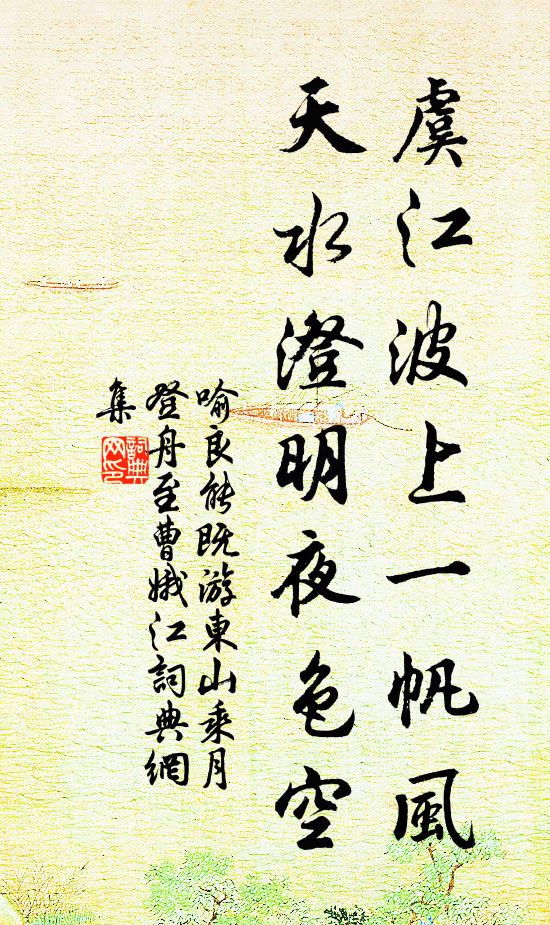 虞江波上一帆風
天水澄明夜色空
喻良能既游東山乘月
登舟至曹娥江詞典網
集
詞典網印